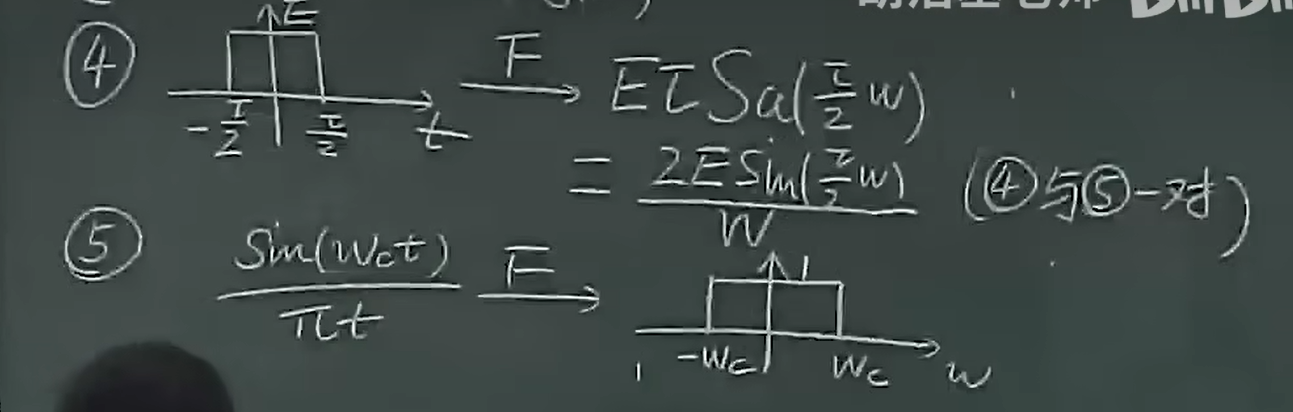 ④ E -τ/2 τ/2 t F→ EτSa(τ/2 w)
= 2E Sin(τ/2 w) / W (④与⑤一对)
⑤ Sin(Wct) / πt F→ 1 -Wc Wc w